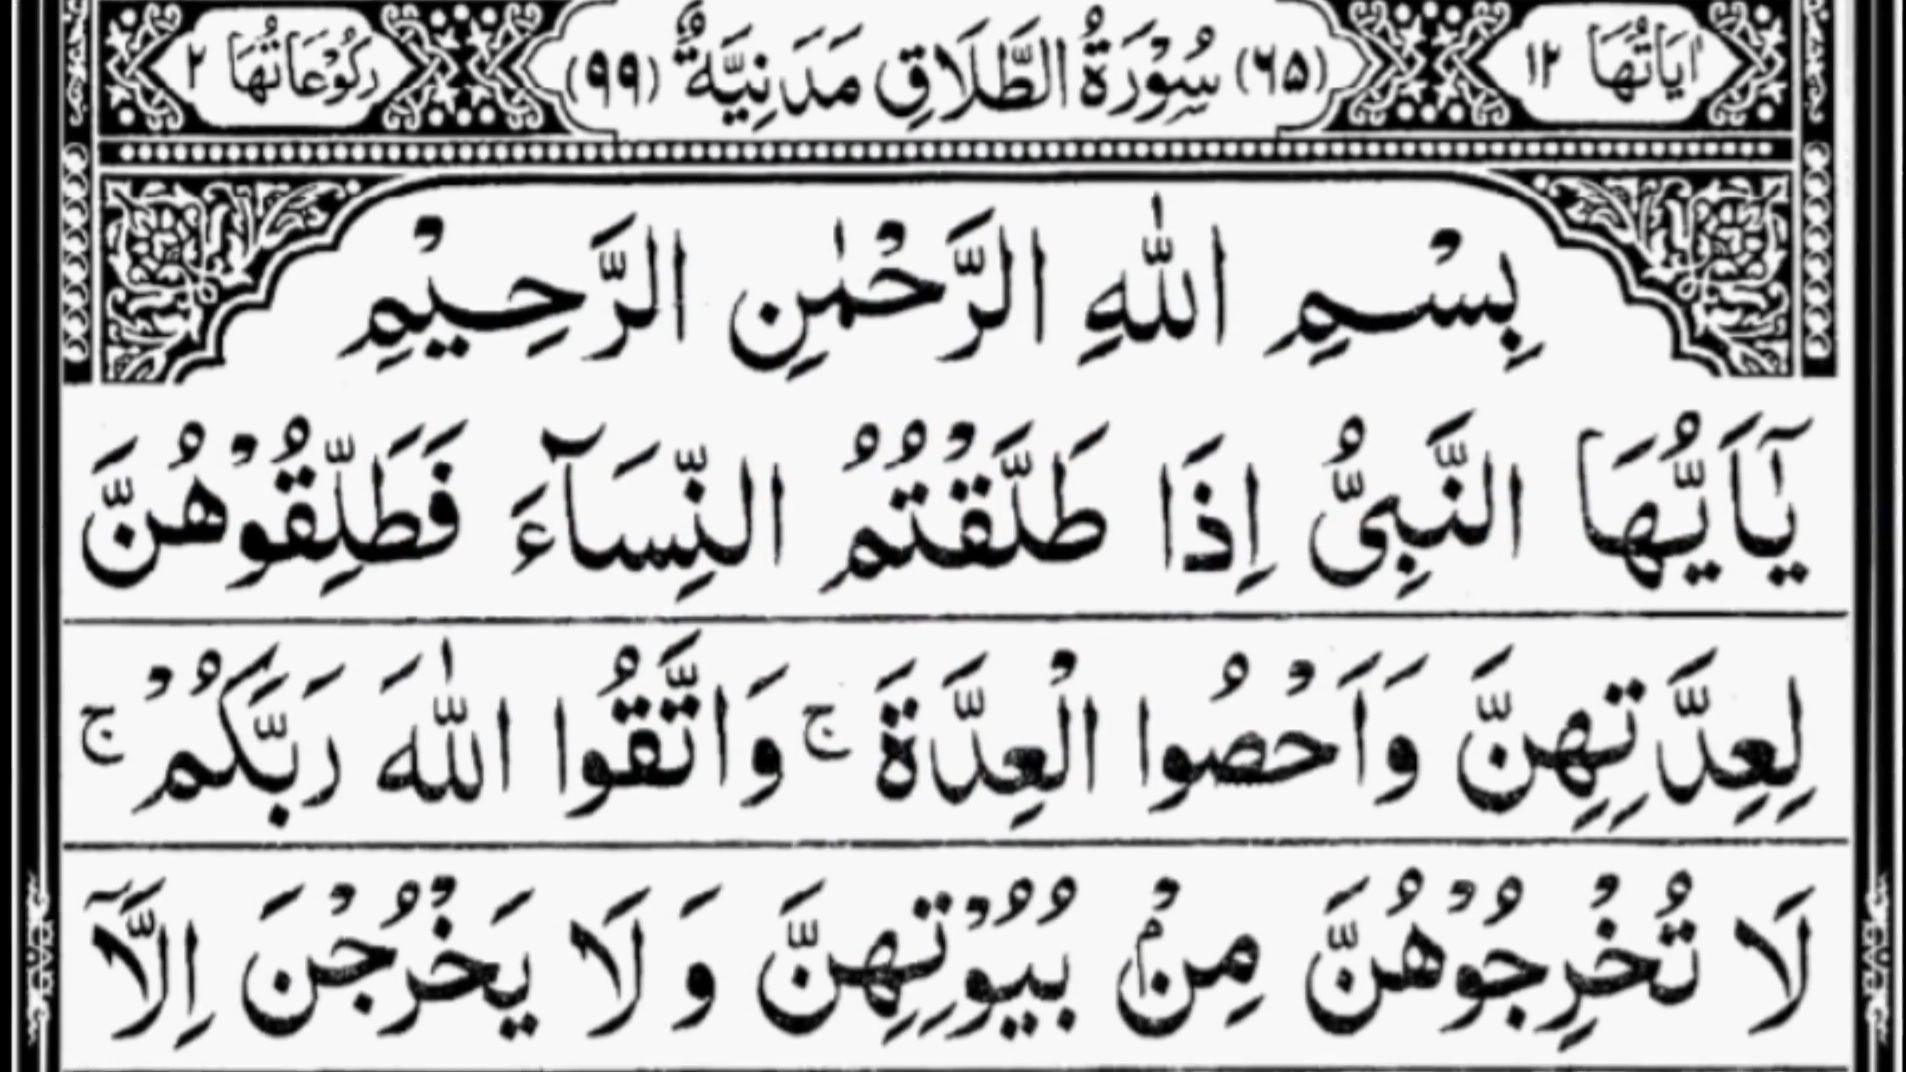 اٰيَاتُهَا ١٢ (٦٥) سُوْرَةُ الطَّلَاقِ مَدَنِيَّةٌ (٩٩) رُكُوْعَاتُهَا ٢
بِسْمِ اللّٰهِ الرَّحْمٰنِ الرَّحِيْمِ
يٰٓاَيُّهَا النَّبِىُّ اِذَا طَلَّقْتُمُ النِّسَآءَ فَطَلِّقُوْهُنَّ
لِعِدَّتِهِنَّ وَاَحْصُوا الْعِدَّةَ ۚ وَاتَّقُوا اللّٰهَ رَبَّكُمْ ۚ
لَا تُخْرِجُوْهُنَّ مِنْۢ بُيُوْتِهِنَّ وَلَا يَخْرُجْنَ اِلَّاۤ